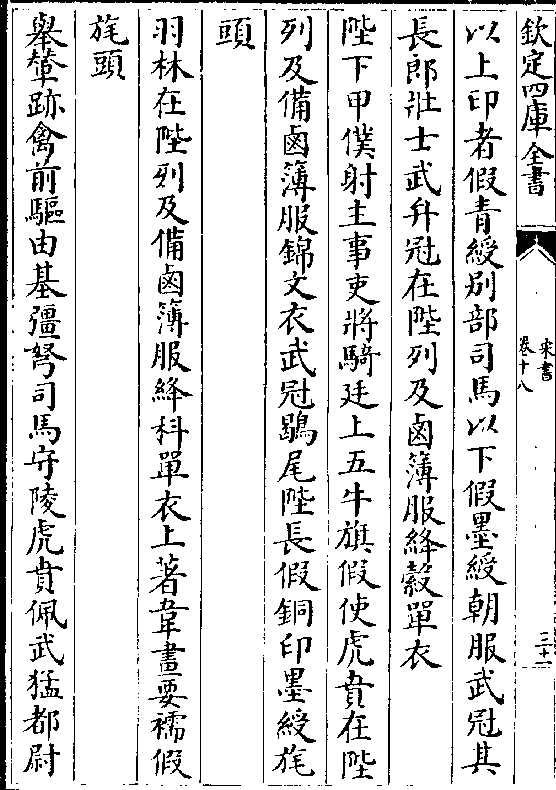 欽定四庫全書
宋書
卷十八
三十一
以上印者假青綬别部司馬以下假墨綬朝服武冠其
長郎壯士武弁冠在陛列及鹵簿服絳縠單衣
陛下甲僕射主事吏將騎廷上五牛旗假使虎賁在陛
列及備鹵簿服錦文衣武冠鶡尾陛長假銅印墨綬旄
頭
羽林在陛列及備鹵簿服絳科單衣上著韋畫要襦假
旄頭
舉輦跡禽前驅由基彊弩司馬守陵虎賁佩武猛都尉